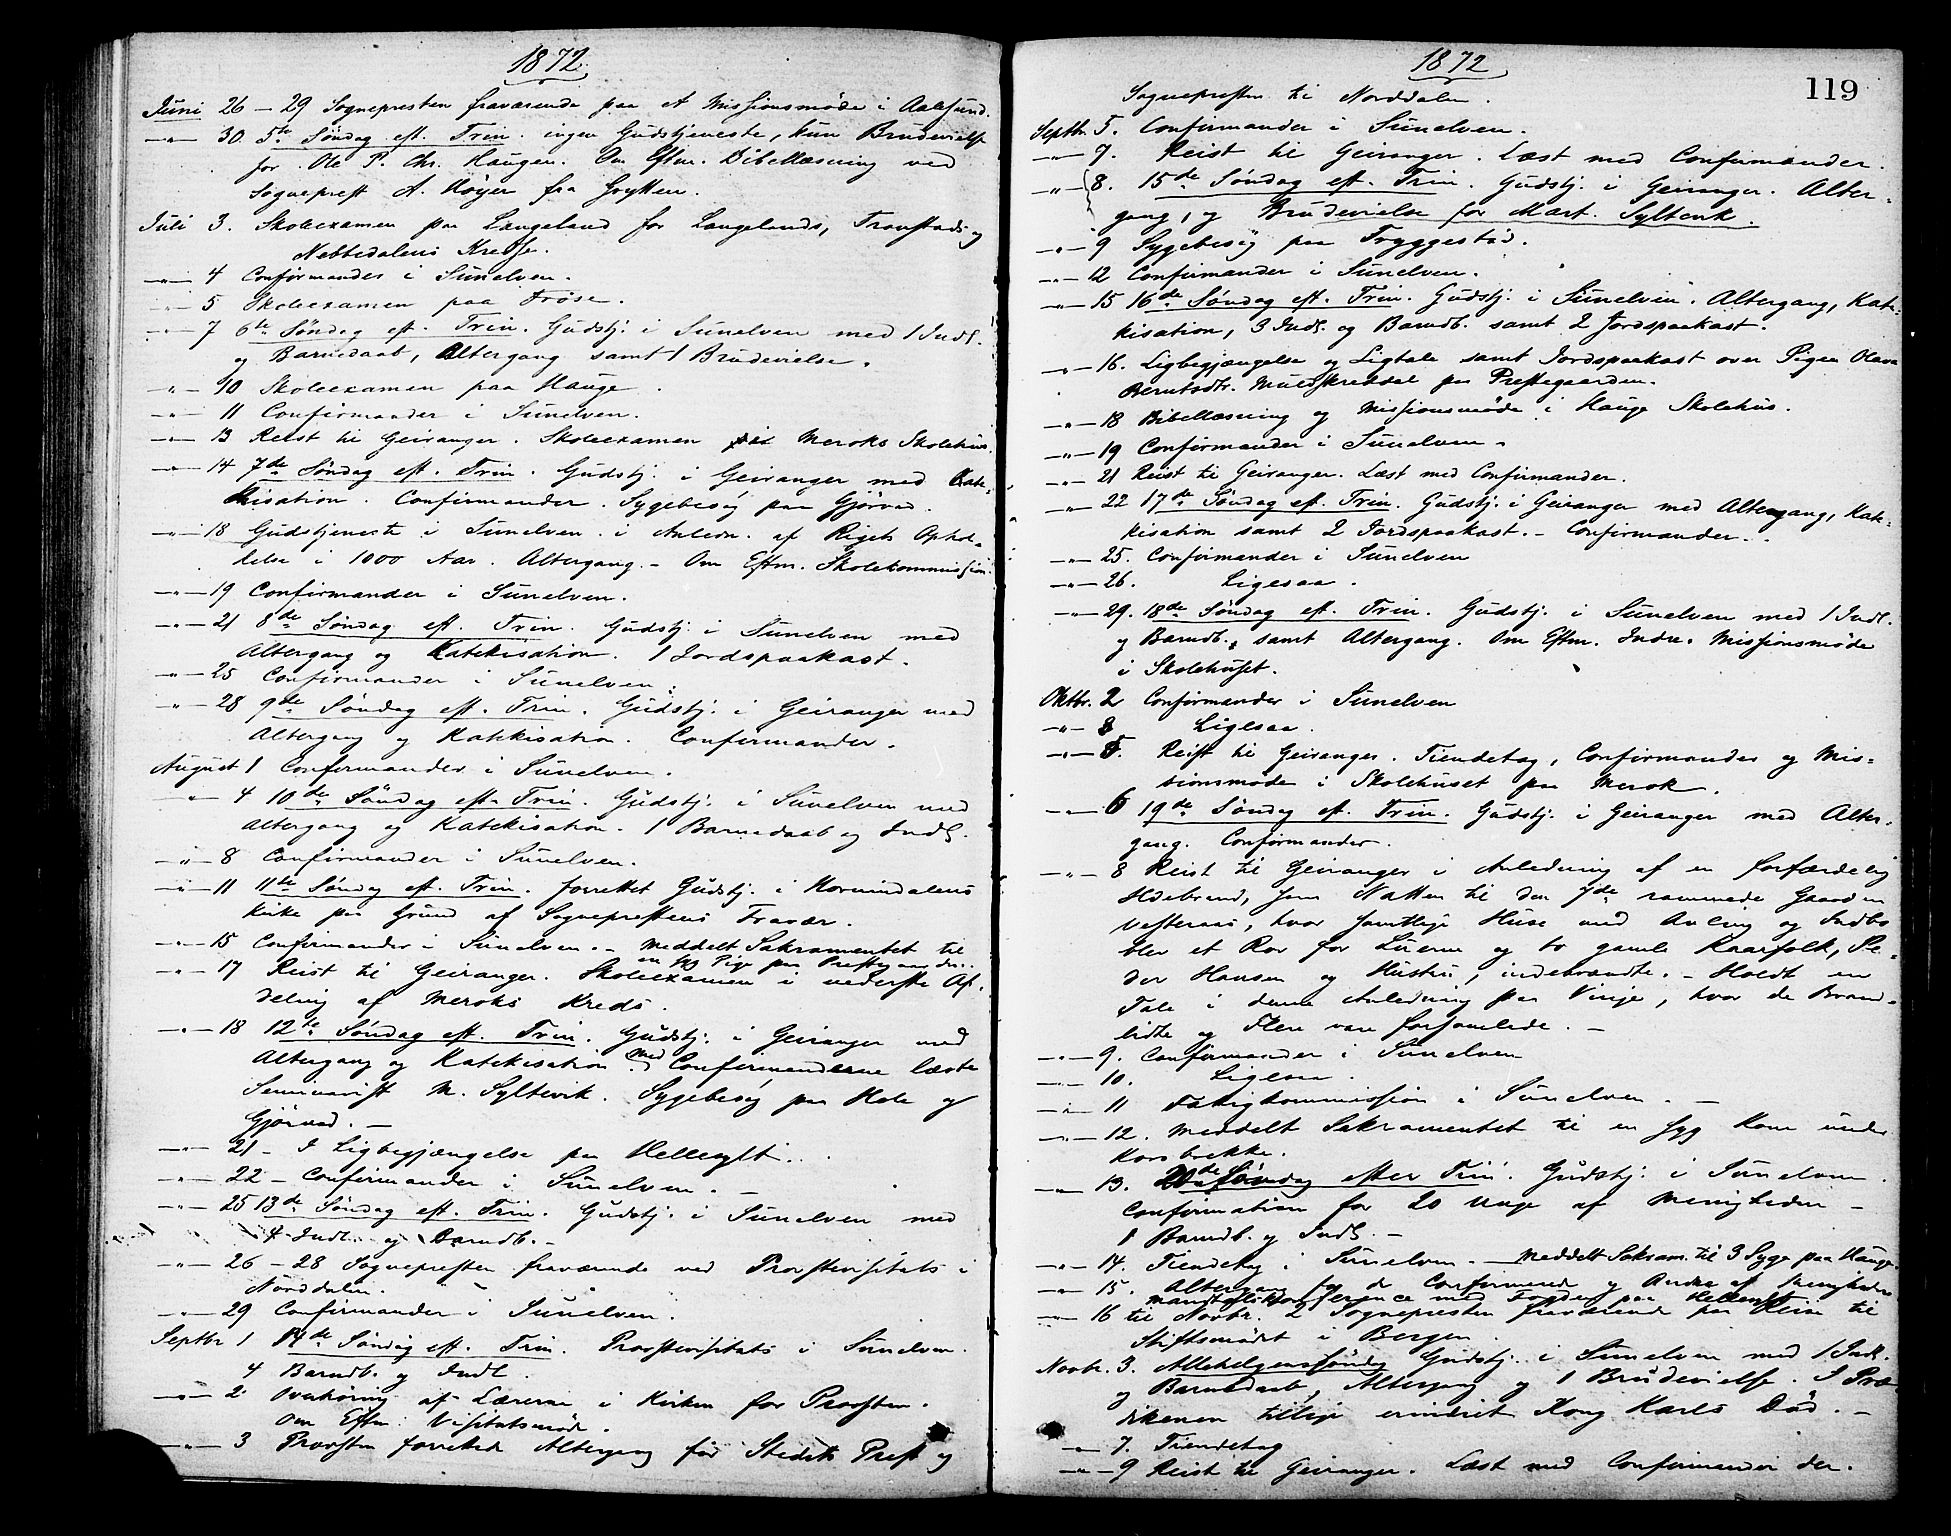 1872
Juni 26 - 29 Sognepresten fraværende paa et Missionsmøde i Aalesund.
-"- 30. 5te Søndag eft. Trin. ingen Gudstjeneste, kun Brudevielse
for Ole P. Chr. Haugen. Om Eftm. Bibellæsning ved
Sogneprest A. Høyer fra Grytten.
Juli 3. Skoleexamen paa Langeland for Langelands, Tronstads og
Nebbedalens Kredse.
-"- 4 Confirmander i Sunelven.
-"- 5 Skoleexamen paa Frøse.
-"- 7 6te Søndag eft. Trin. Gudstj. i Sunelven med 1 Indl.
og Barnedaab, Altergang samt 1 Brudevielse.
-"- 10 Skoleexamen paa Hauge.
-"- 11 Confirmander i Sunelven.
-"- 13 Reist til Geiranger. Skoleexamen i Meroks Skolehus.
-"- 14 7de Søndag eft. Trin. Gudstj. i Geiranger med Kate-
kisation. Confirmander. Sygebesøg paa Gjørvad.
-"- 18 Gudstjeneste i Sunelven i Anledn. af Rigets Ophol-
delse i 1000 Aar. Altergang. - Om Eftm. Skolekommission.
-"- 19 Confirmander i Sunelven.
-"- 21 8de Søndag eft. Trin. Gudstj. i Sunelven med
Altergang og Katekisation. 1 Jordspaakast.
-"- 25 Confirmander i Sunelven.
-"- 28 9de Søndag eft. Trin. Gudstj. i Geiranger med
Altergang og Katekisation. Confirmander.
August 1 Confirmander i Sunelven.
-"- 4 10de Søndag eft. Trin. Gudstj. i Sunelven med
Altergang og Katekisation. 1 Barnedaab og Indl.
-"- 8 Confirmander i Sunelven.
-"- 11 11te Søndag eft. Trin. forrettet Gudstj. i Hornindalens
Kirke paa Grund af Sogneprestens Fravær.
-"- 15 Confirmander i Sunelven. - Meddelt Sakramentet til
en syg Pige paa Prestegaarden.
-"- 17 Reist til Geiranger. Skoleexamen i nederste Af-
deling af Meroks Kreds.
-"- 18 12te Søndag eft. Trin. Gudstj. i Geiranger med
Altergang og Katekisation. Med Confirmanderne læste
Seminarist M. Syltevik. Sygebesøg paa Hole og
Gjørvad. -
-"- 21 - I Ligbegjængelse paa Hellesylt.
-"- 22 - Confirmander i Sunelven. -
-"- 25 13de Søndag eft. Trin. Gudstj. i Sunelven med
4 Indl. og Barndb. -
-"- 26 - 28 Sognepresten fraværende ved Provstevisitats i
Norddalen.
-"- 29 Confirmander i Sunelven.
Septbr 1 14de Søndag eft. Trin. Provstevisitats i Sunelven.
4 Barndb. og Indl.
-"- 2 Overhøring af Lærerne i Kirken for Provsten.
Om Eftm. Visitatsmøde.
-"- 3 Provsten forrettede Altergang for Stedets Prest og
1872
119
Sognepresten til Norddalen.
Septbr. 5. Confirmander i Sunelven.
-"- 7. Reist til Geiranger. Læst med Confirmander.
-"- 8. 15de Søndag eft. Trin. Gudstj. i Geiranger. Alter-
gang, og Brudevielse for Mart. Syltevik.
-"- 9 Sygebesøg paa Tryggestad.
-"- 12 Confirmander i Sunelven.
-"- 15 16de Søndag eft. Trin. Gudstj. i Sunelven. Altergang, Kate-
kisation, 3 Indl. og Barndb. samt 2 Jordspaakast.
-"- 16. Ligbegjængelse og Ligtale samt Jordspaakast over Pigen Olava
Berntsdtr. Muldskreddal paa Prestegaarden.
-"- 18 Bibellæsning og Missionsmøde i Hauge Skolehus.
-"- 19 Confirmander i Sunelven.
-"- 21 Reist til Geiranger. Læst med Confirmander.
-"- 22 17de Søndag eft. Trin. Gudstj. i Geiranger med Altergang, Kate-
kisation samt 2 Jordspaakast. - Confirmander.
-"- 25. Confirmander i Sunelven
-"- 26. Ligesaa.
-"- 29. 18de Søndag eft. Trin. Gudstj. i Sunelven med 1 Indl.
og Barndb., samt Altergang. Om Eftm. Indre Missionsmøde
i Skolehuset.
Oktbr. 2 Confirmander i Sunelven
-"- 3 Ligesaa.
-"- 5. Reist til Geiranger. Tiendetag, Confirmander og Mis-
sionsmøde i Skolehuset paa Merok.
-"- 6 19de Søndag eft. Trin. Gudstj. i Geiranger med Alter-
gang. Confirmander.
-"- 8 Reist til Geiranger i Anledning af en forfærdelig
Ildebrand, som Natten til den 7de rammede Gaarden
Vesteraas, hvor samtlige Huse med Avling og Indbo
blev et Rov for Luerne og to gamle Kaarfolk, Pe-
der Hansen og Hustru, indebrændte. - Holdt en
Tale i denne Anledning paa Vinje, hvor de Brand-
lidte og Flere vare forsamlede. -
-"- 9. Confirmander i Sunelven
-"- 10. Ligesaa.
-"- 11 Fattigkommission i Sunelven. -
-"- 12. Meddelt Sakramentet til en syg Kone under
Korsbrekke.
-"- 13. 20de Søndag efter Trin. Gudstj. i Sunelven.
Confirmation for 20 Unge af Menigheden -
1 Barndb. og Indl. -
-"- 14. Tiendetag i Sunelven. - Meddelt Sakram. til 3 Syge paa Hauge.
-"- 15. Altergang for de Confirmerede og Andre af Menigheden
Mandtalskonference med Fogden paa Hellesylt
-"- 16 til Novbr. 2 Sognepresten fraværende paa Reise til
Stiftsmødet i Bergen.
Novbr. 3. Allehelgenssøndag Gudstj. i Sunelven med 1 Indl.
og Barnedaab, Altergang og 1 Brudevielse. I Præ-
dikenen tillige erindret Kong Karls Død. -
-"- 7. Tiendetag
-"- 9 Reist til Geiranger. Læst med Confirmander der.